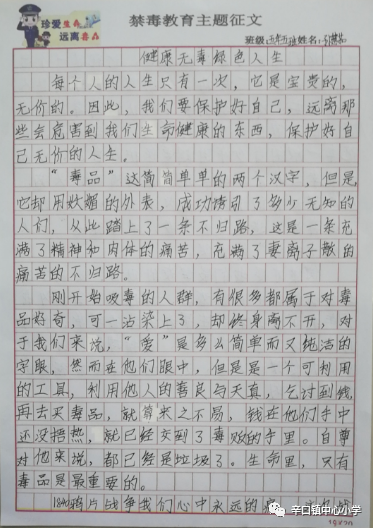 珍爱生命
远离毒品
禁毒教育主题征文
班级:五年五班姓名:
健康无毒绿色人生
每个人的人生只有一次，它是宝贵的，
无价的。因此，我们要保护好自己，远离那
些会危害到我们生命健康的东西，保护好自
己无价的人生。
“毒品”这简简单单的两个汉字，但是，
它却用妖媚的外表，成功诱引了多少无知的
人们，从此踏上了一条不归路，这是一条充
满了精神和肉体的痛苦，充满了妻离子散的
痛苦的不归路。
刚开始吸毒的人群，有很多都属于对毒
品好奇，可一沾染上了，却终身离不开，对
于我们来说，“爱”是多么简单而又纯洁的
字眼，然而在他们眼中，但是是一个可利用
的工具，利用他人的善良与天真，乞讨到钱
再去买毒品，就算来之不易，钱在他们手中
还没捂热，就已经交到了毒贩的手里。自尊
对他来说，都已经是垃圾了。生命里，只有
毒品是最重要的。
1840鸦片战争我们心中永远的
辛口镇中心小学